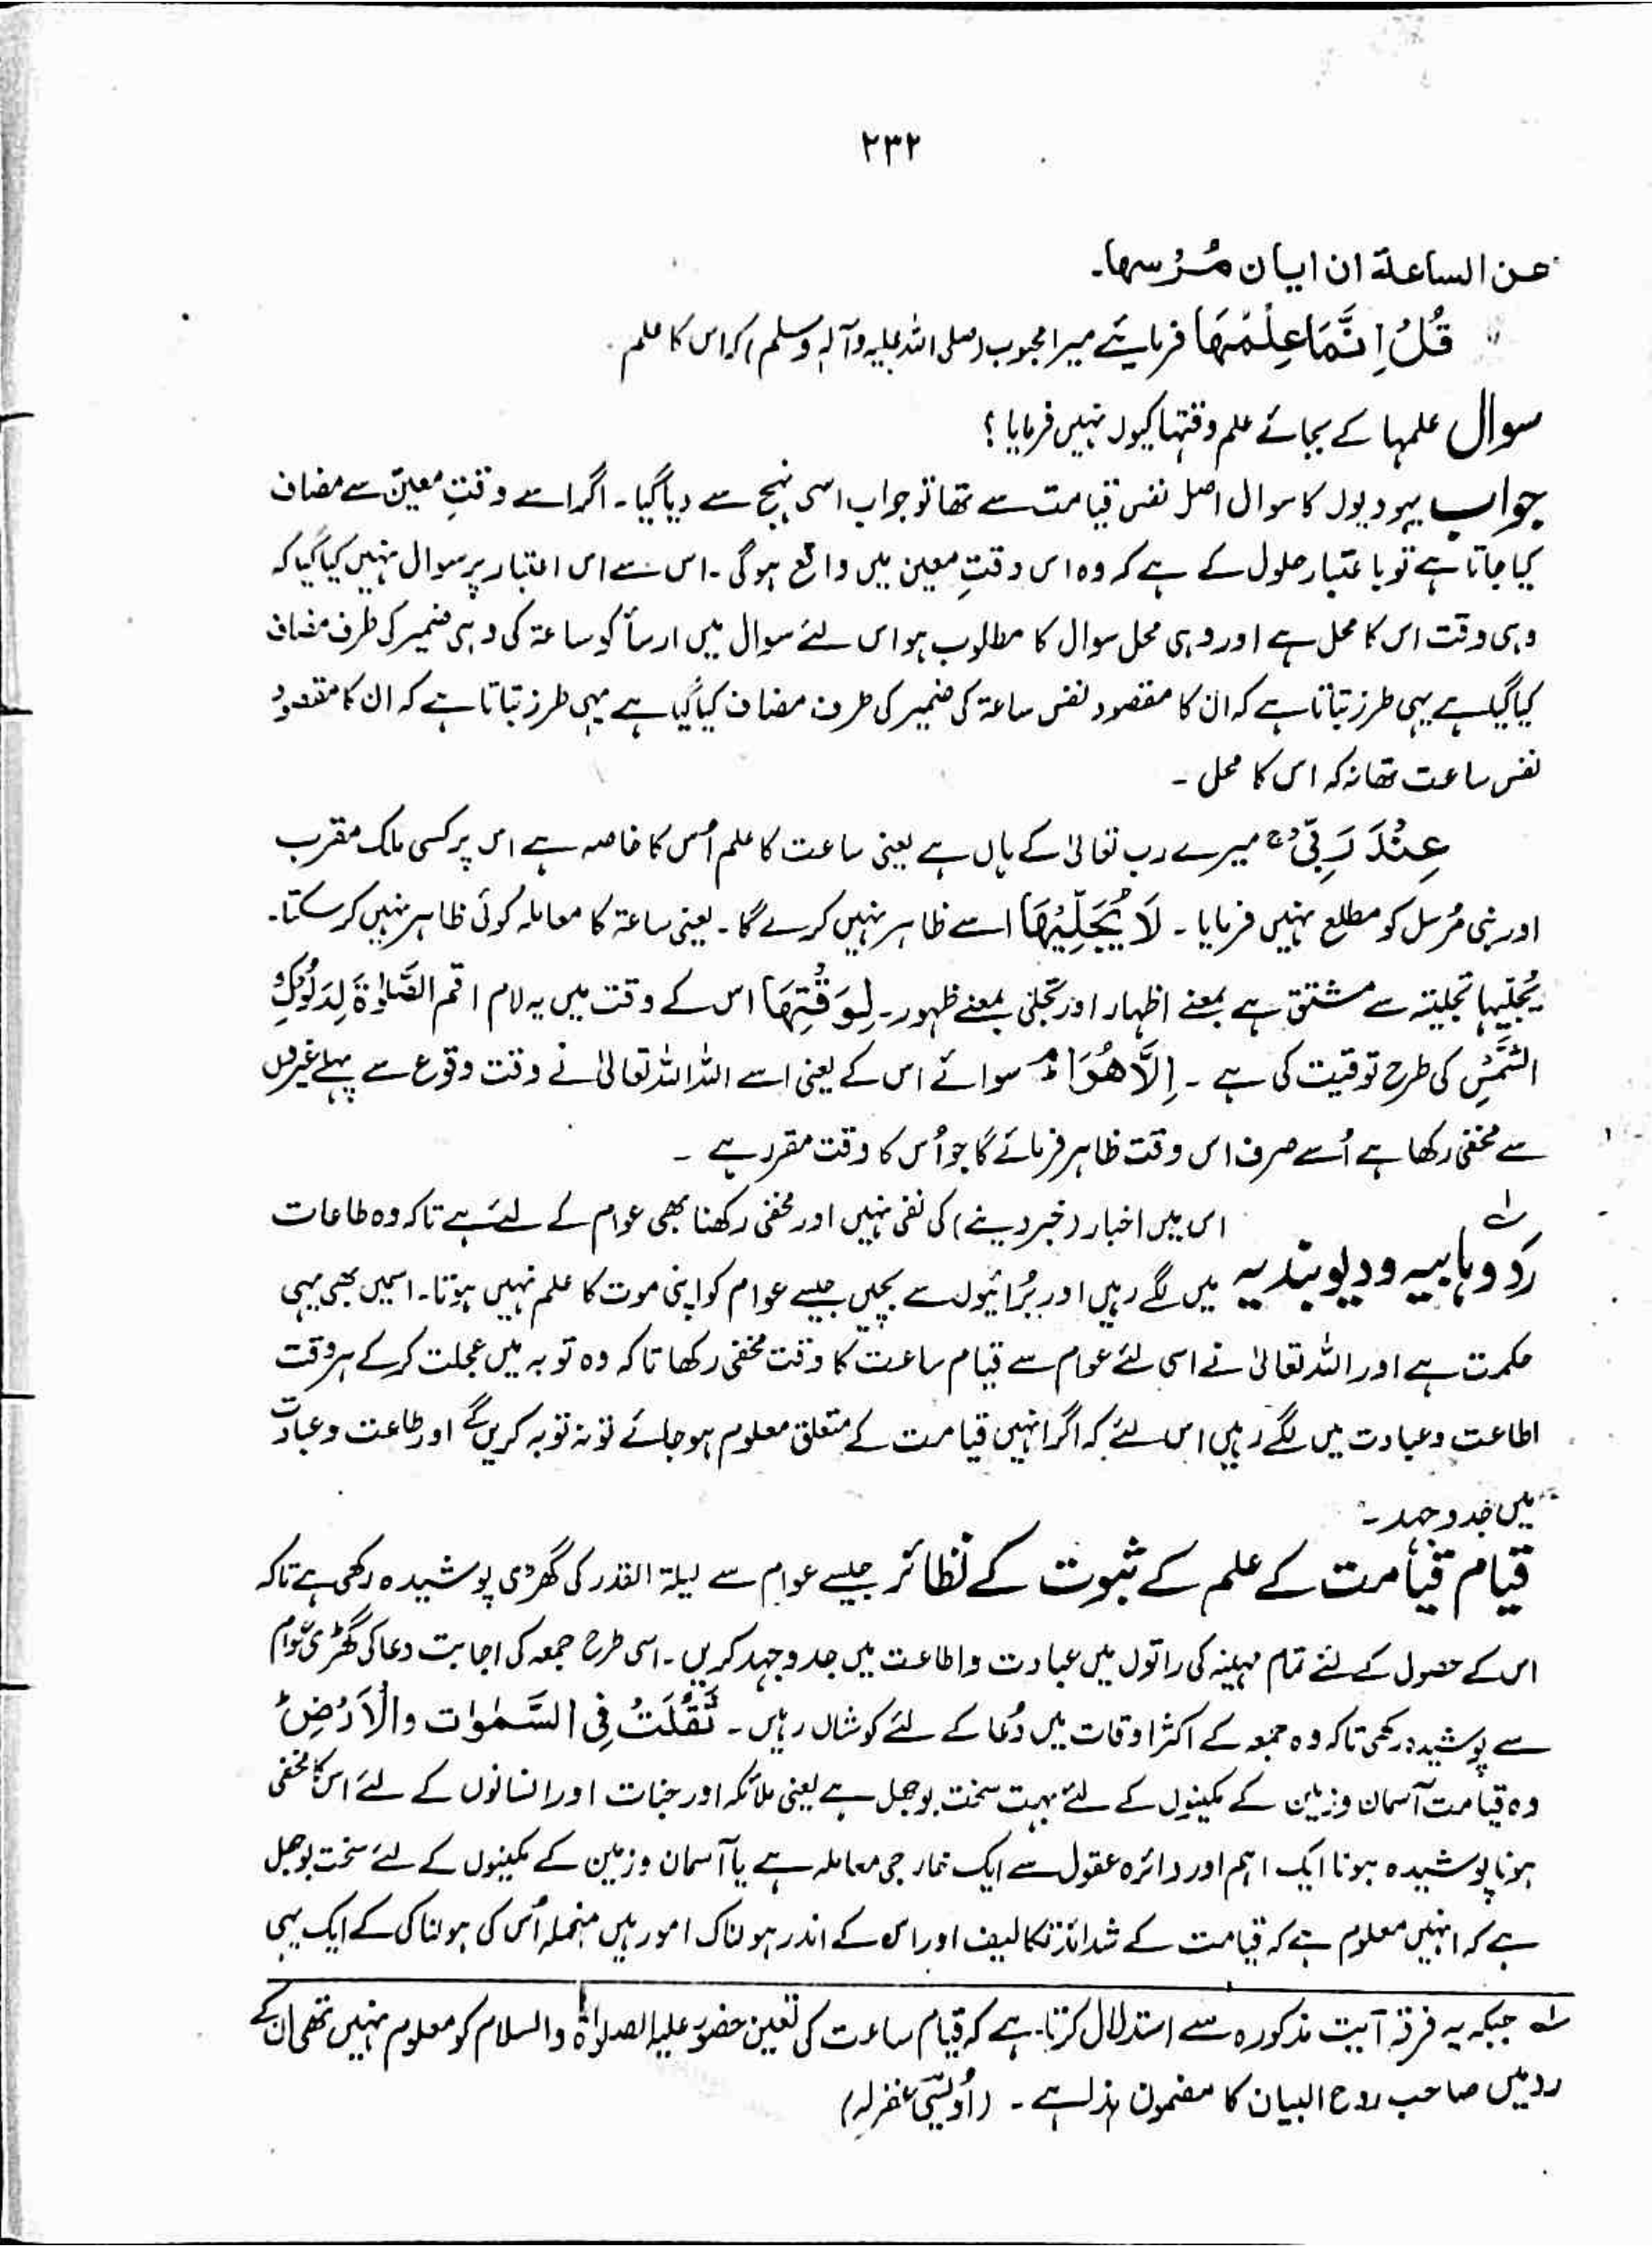 ۲۳۲
عن الساعلة ان ايان مُرْسها۔
قُلْ اِنَّمَا عِلْمُهَا فرمایئے میرا محبوب (صلی اللہ علیہ وآلہٖ وسلم) کہ اس کا علم
سوال علمہا کے بجائے علم وقتہا کیوں نہیں فرمایا ؟
جواب یہودیوں کا سوال اصل نفس قیامت سے تھا تو جواب اسی نہج سے دیا گیا۔ اگر اسے وقتِ معینّ سے مضاف
کیا جاتا ہے تو باعتبار حلول کے ہے کہ وہ اس وقتِ معین میں واقع ہوگی۔ اس سے اس اعتبار پر سوال نہیں کیا گیا کہ
وہی وقت اس کا محل ہے اور وہی محل سوال کا مطلوب ہو اس لئے سوال میں ارسأ کو ساعۃ کی وہی ضمیر کی طرف مضاف
کیا گیا ہے یہی طرز بتاتا ہے کہ ان کا مقصود نفس ساعۃ کی ضمیر کی طرف مضاف کیا گیا ہے یہی طرز بتاتا ہے کہ ان کا مقصود
نفس ساعت تھا نہ کہ اس کا محل ۔
عِنْدَ رَبِّیْ ج میرے رب تعالیٰ کے ہاں ہے یعنی ساعت کا علم اُس کا خاصہ ہے اس پر کسی ملک مقرب
اور نبی مُرسل کو مطلع نہیں فرمایا ۔ لَا یُجَلِّیْہَا اسے ظاہر نہیں کرے گا ۔ یعنی ساعۃ کا معاملہ کوئی ظاہر نہیں کرسکتا۔
یُجلّیہا تجلیتہ سے مشتق ہے بمعنے اظہار اور تجلّی بمعنے ظہور۔ لِوَقْتِهَا اس کے وقت میں یہ لام اقم الصَّلوٰۃَ لِدَلُوْکِ
الشَّمْسِ کی طرح توقیت کی ہے ۔ اِلَّا هُوَ سوائے اس کے یعنی اسے اللہ اللہ تعالیٰ نے وقت وقوع سے پہلے غیروں
سے مخفی رکھا ہے اُسے صرف اس وقت ظاہر فرمائے گا جو اُس کا وقت مقرر ہے ۔
ردّ وہابیہ و دیوبندیہ ؎۱ اس میں اخبار (خبر دینے) کی نفی نہیں اور مخفی رکھنا بھی عوام کے لئے ہے تاکہ وہ طاعات
میں لگے رہیں اور بُرائیوں سے بچیں جیسے عوام کو اپنی موت کا علم نہیں ہوتا۔ اسمیں بھی یہی
حکمت ہے اور اللہ تعالیٰ نے اسی لئے عوام سے قیام ساعت کا وقت مخفی رکھا تاکہ وہ توبہ میں عجلت کرکے ہر وقت
اطاعت و عبادت میں لگے رہیں اس لئے کہ اگر انہیں قیامت کے متعلق معلوم ہوجائے تو نہ توبہ کریں گے اور طاعت و عبادت
میں جدوجہد ۔
قیام قیامت کے علم کے ثبوت کے نظائر جیسے عوام سے لیلۃ القدر کی گھڑی پوشیدہ رکھی ہے تاکہ
اس کے حصول کے لئے تمام مہینہ کی راتوں میں عبادت و اطاعت میں جدوجہد کریں ۔ اسی طرح جمعہ کی اجابت دعا کی گھڑی عوام
سے پوشیدہ رکھی تاکہ وہ جمعہ کے اکثر اوقات میں دُعا کے لئے کوشاں رہیں ۔ ثَقُلَتْ فِی السَّمٰوٰات والْاَرْضِ ط
وہ قیامت آسمان و زمین کے مکینوں کے لئے بہت سخت بوجھل ہے یعنی ملائکہ اور جنات اور انسانوں کے لئے اس کا مخفی
ہونا پوشیدہ ہونا ایک اہم اور دائرہ عقول سے ایک خارجی معاملہ ہے یا آسمان و زمین کے مکینوں کے لئے سخت بوجھل
ہے کہ انہیں معلوم ہے کہ قیامت کے شدائد تکالیف اور اس کے اندر ہولناک امور ہیں منجملہ اُس کی ہولناکی کے ایک یہی
؎۱ جبکہ یہ فرقہ آیت مذکورہ سے استدلال کرتا ہے کہ قیام ساعت کی تعین حضور علیہ الصلوٰۃ والسلام کو معلوم نہیں تھی ان کے
رد میں صاحب روح البیان کا مضمون ہذا ہے ۔ (اُویسی غفرلہٗ)